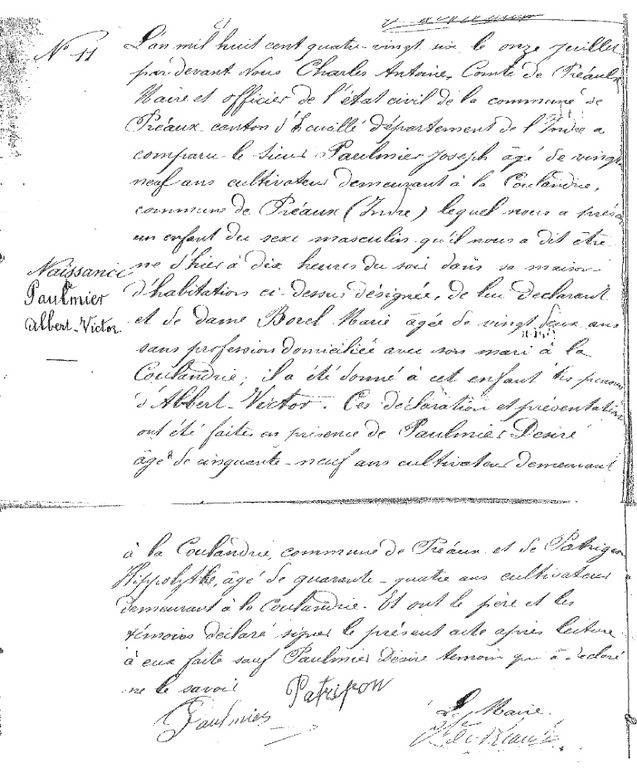 N° 11
L'an mil huit cent quatre-vingt six le onze juillet
par devant Nous Charles Antoine, Comte de Préaulx
Maire et officier de l'état civil de la commune de
Préaux canton d'Ecueillé département de l'Indre a
comparu le sieur Paulmier Joseph âgé de vingt
neuf ans cultivateur demeurant à la Coulandrie,
commune de Préaux (Indre) lequel nous a présen
un enfant du sexe masculin qu'il nous a dit être
Naissance
né d'hier à dix heures du soir dans sa maison
Paulmier
d'habitation ci-dessus désignée, de lui déclarant
Albert-Victor
et de dame Borel Marie âgée de vingt deux ans
sans profession domiciliée avec son mari à la
Coulandrie; il a été donné à cet enfant les prénoms
d'Albert-Victor. Ces déclaration et présentation
ont été faites en présence de Paulmier Désiré
âgé de cinquante-neuf ans cultivateur demeurant
à la Coulandrie, commune de Préaux et de Patrigeon
Hippolythe, âgé de quarante-quatre ans cultivateur
demeurant à la Coulandrie. Et ont le père et les
témoins déclaré signer le présent acte après lecture
à eux faite sauf Paulmier Désiré témoin qui a déclaré
ne le savoir
Patrijon
Paulmier
Le Maire